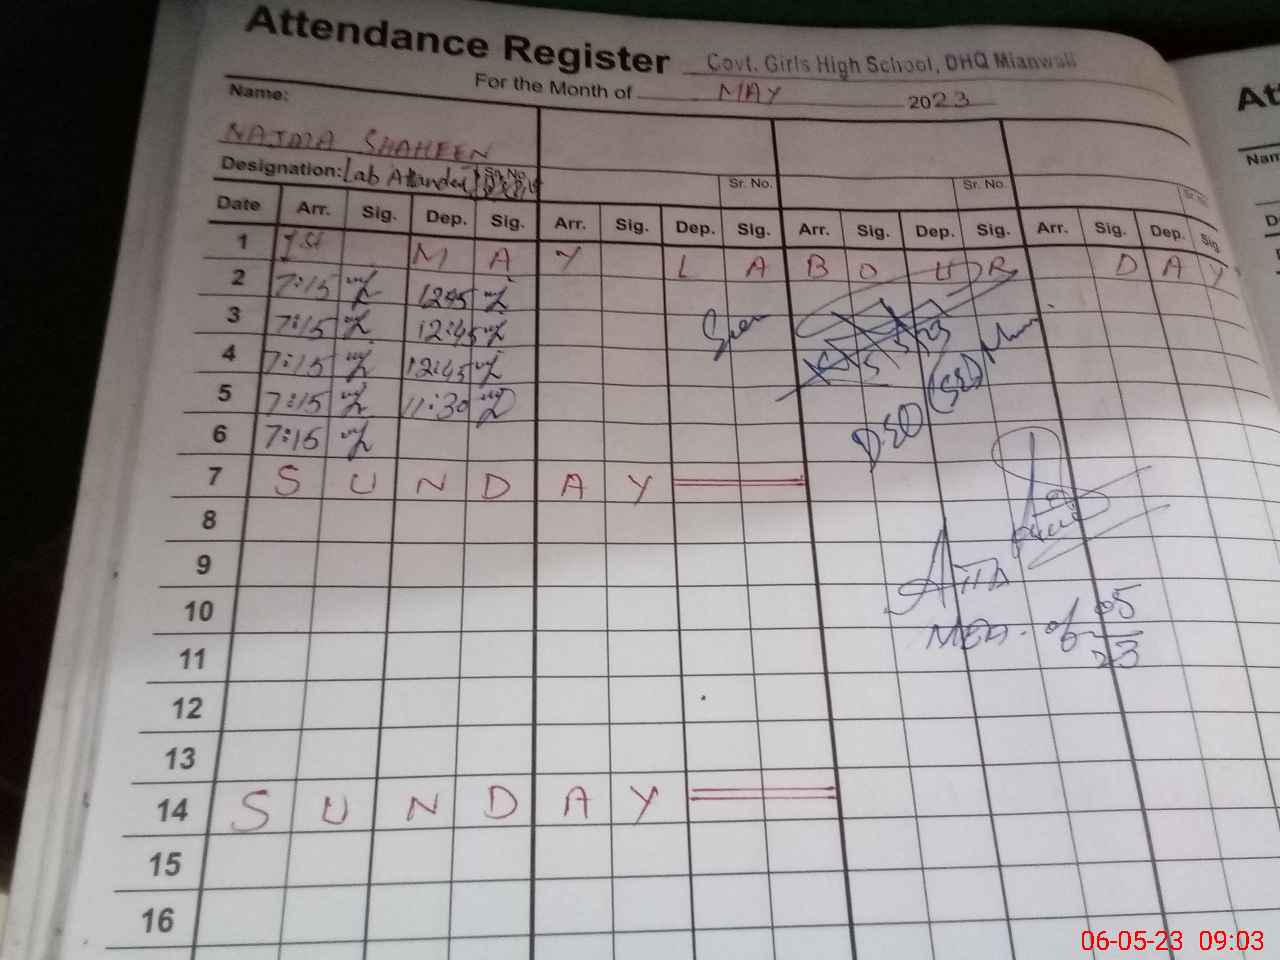 Attendance Register Govt. Girls High School, DHQ Mianwali
For the Month of MAY 2023
Name:
NAJMA SHAHEEN
Designation: Lab Attendent Sr. No. Sr. No. Sr. No.
Date Arr. Sig. Dep. Sig. Arr. Sig. Dep. Sig. Arr. Sig. Dep. Sig. Arr. Sig. Dep. Sig.
1 1st M A Y L A B O U R D A Y
2 7:15 12:45
3 7:15 12:45
4 7:15 12:45
5 7:15 11:30
6 7:15
DEO (SE)
7 S U N D A Y
8
9
10
MEA. 06 05 23
11
12
13
14 S U N D A Y
15
16
06-05-23 09:03
At
Nam
D